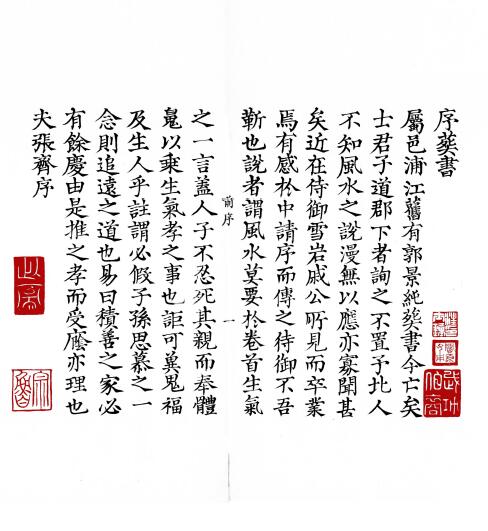 序葬書
屬邑浦江舊有郭景純葬書今亡矣
士君子道郡下者詢之不置予北人
不知風水之說漫無以應亦寡聞甚
矣近在侍御雪岩戚公所見而卒業
焉有感於中請序而傳之侍御不吾
靳也說者謂風水莫要於卷首生氣
前序
一
之一言蓋人子不忍死其親而奉體
魄以乘生氣孝之事也詎可冀鬼福
及生人乎註謂必假子孫思慕之一
念則追遠之道也易曰積善之家必
有餘慶由是推之孝而受廕亦理也
夫張齊序